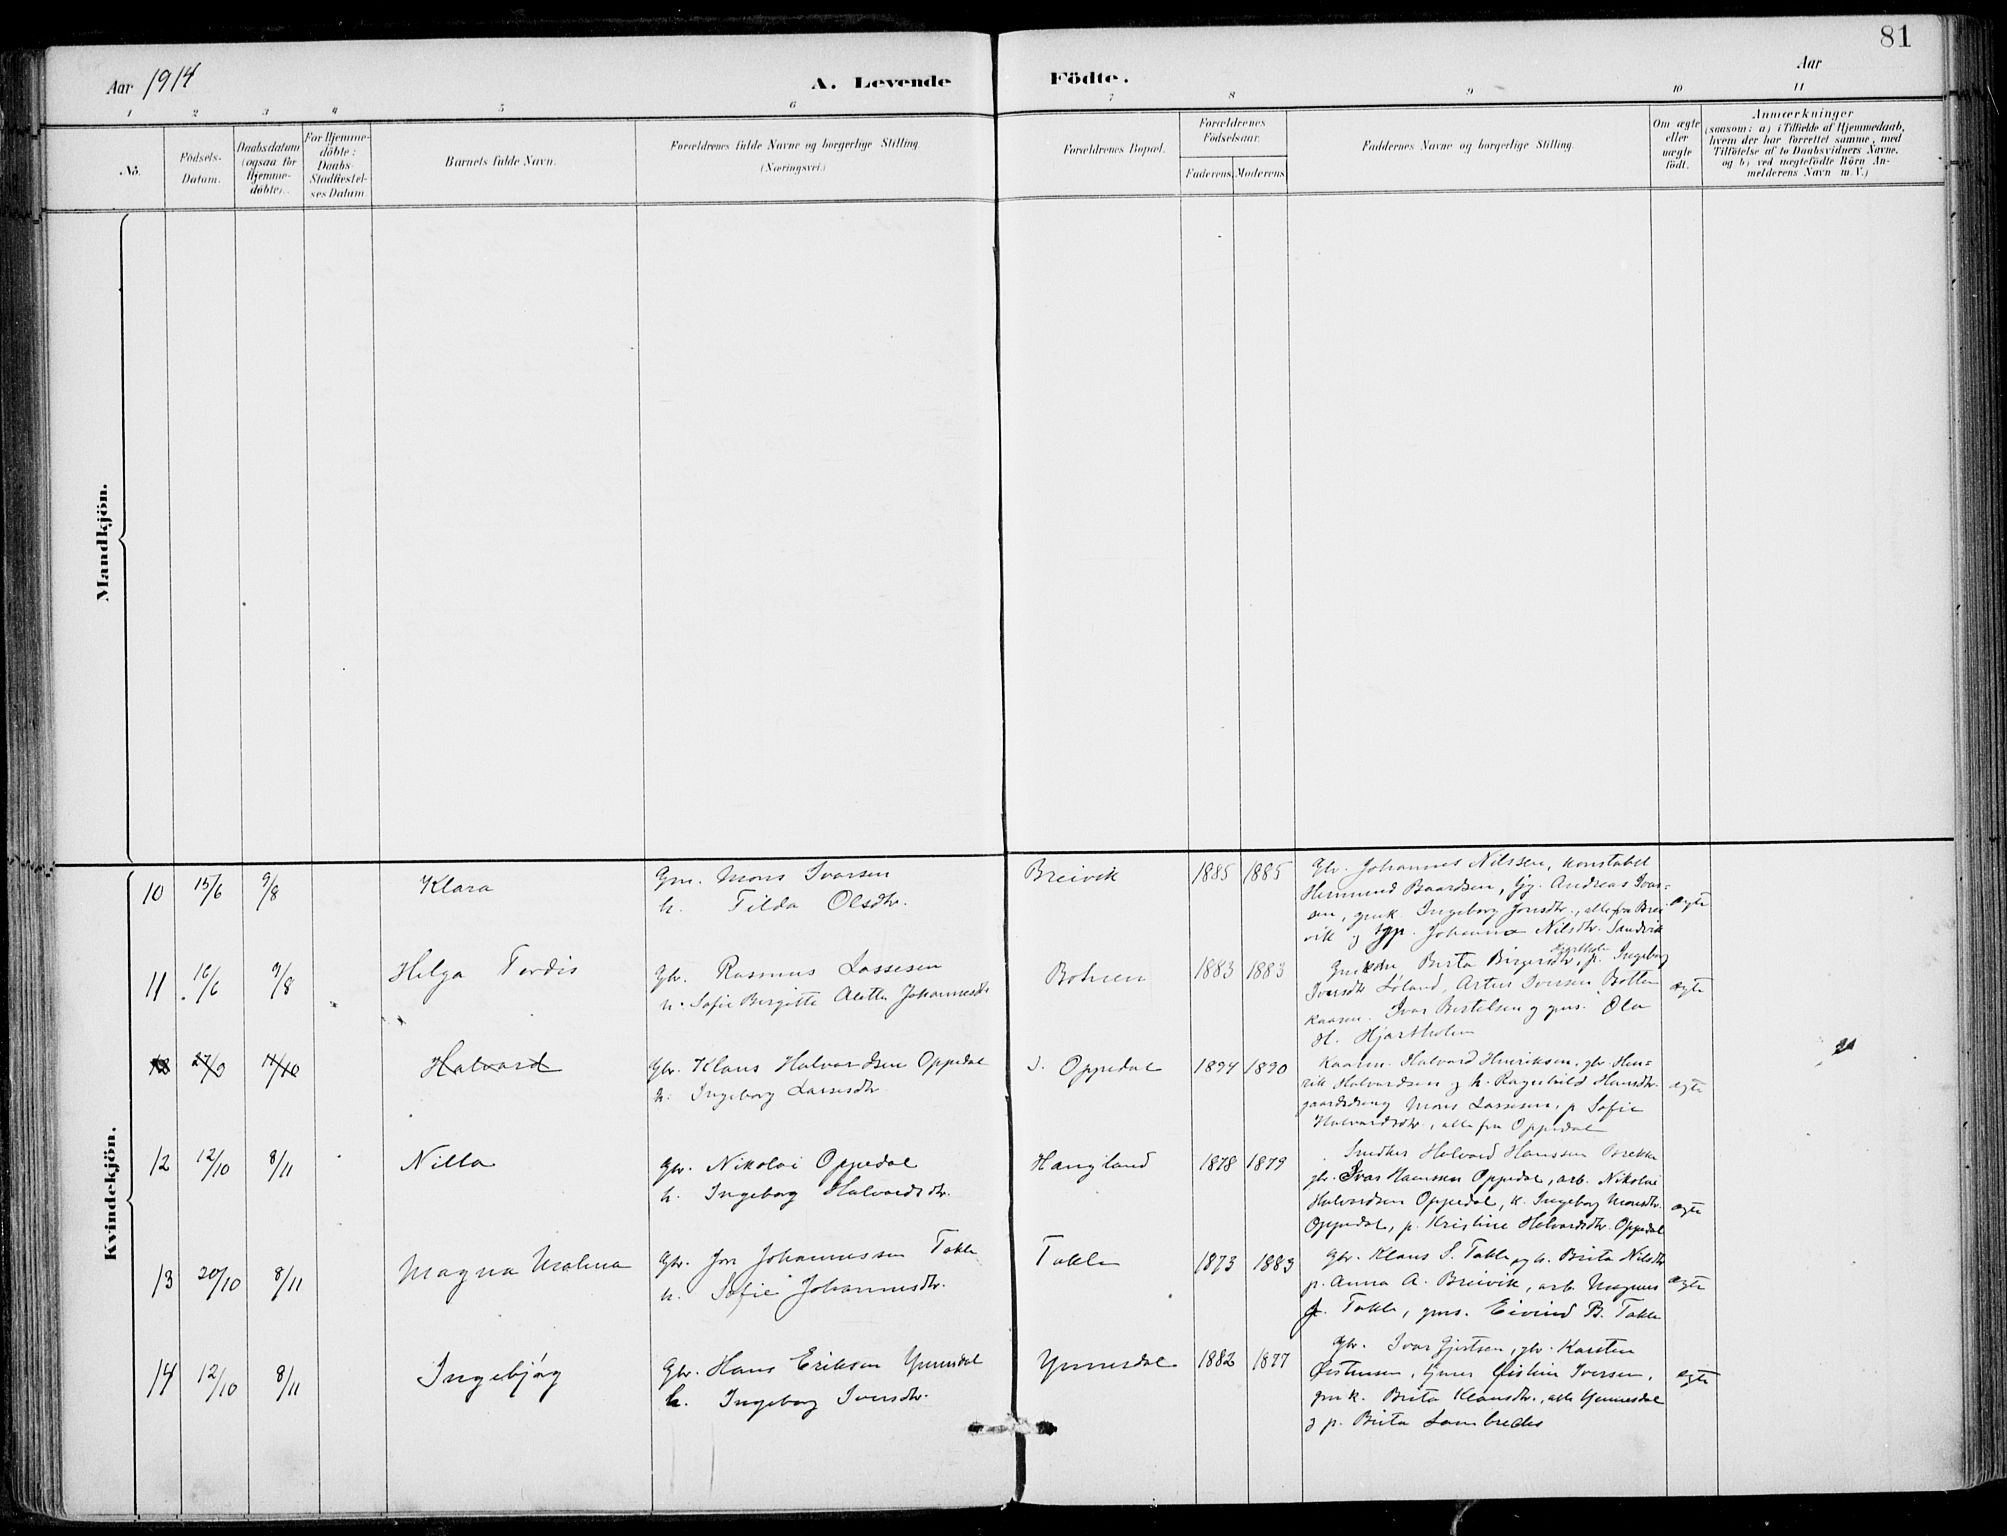 81
Aar 1914
A. Levende Födte.
Aar
1 2 3 4 5 6 7 8 9 10 11
No.
Födsels-
Datum.
Daabsdatum
(ogsaa for
Hjemme-
döbte).
For Hjemme-
döbte:
Daabs-
Stadfæstel-
ses Datum
Barnets fulde Navn.
Forældrenes fulde Navne og borgerlige Stilling
(Næringsvei.)
Forældrenes Bopæl.
Forældrenes
Födselsaar.
Faderens. Moderens.
Faddernes Navne og borgerlige Stilling
Om ægte
eller
uægte
födt.
Anmærkninger
(saasom: a) i Tilfælde af Hjemmedaab,
hvem der har forrettet samme, med
Tilföielse af to Daabsvidners Navne,
og b) ved uægtefödte Börn An-
melderens Navn m. V.)
Mandkjön.
Kvindekjön.
10 15/6 9/8 Klara
Gm. Mons Ivarsen
h. Tilda Olsdtr.
Breivik 1885 1885
Gbr. Johannes Nilssen, konstabel
Hermund Baardsen, Andreas Ivar-
sen, gmk. Ingeborg Jonsdtr., alle fra Brei
vik og Johanne Nilsdtr. Sandvik
ægte
11 16/6 9/8 Helga Tordis
Gbr. Rasmus Lassesen
h. Sofie Birgitte Alette Johannesdtr
Bohren 1883 1883
Brita Birgersdtr. Hjartholm, p. Ingeborg
Iversdtr. Löland, Iversen Botten
Kaarm. Ivar Bertelsen og gms. Ola
H. Hjartholm
ægte
27/9 11/10 Halvard
Gbr. Klaus Halvardsen Oppedal
h. Ingeborg Lassesdtr.
Oppedal 1894 1890
Kaarm. Halvard Henriksen, gbr. Hen-
rik Halvardsen og h. Ragnhild Hansdtr.
gaardsdreng Mons Lassesen, p. Sofie
Halvardsdtr., alle fra Oppedal
ægte
12 12/10 8/11 Nilla
Gbr. Nikolai Oppedal
h. Ingeborg Halvardsdtr.
Haugland 1878 1879
Snedker Halvard Hanssen Brekke
gbr. Ivar Hanssen Oppedal, arb. Nikolai
Halvardsen Oppedal, k. Ingeborg Monsdtr.
Oppedal, p. Kristine Halvardsdtr. Oppedal
ægte
13 20/10 8/11 Magna Malena
Gbr. Jon Johannessen Takle
h. Sofie Johannesdtr.
Takle 1873 1883
Gbr. Klaus S. Takle og h. Brita Nilsdtr
p. Anna A. Breivik, arb. Magnus
J. Takle, gms. Eivind B. Takle
ægte
14 12/10 8/11 Ingebjørg
Gbr. Hans Eriksen Ynnesdal
h. Ingeborg Iversdtr.
Ynnesdal 1882 1877
Gbr. Ivar Gjertsen, gbr. Karsten
Østensen, Iversen,
gmk. Brita Klausdtr., alle Ynnesdal
og p. Brita
ægte